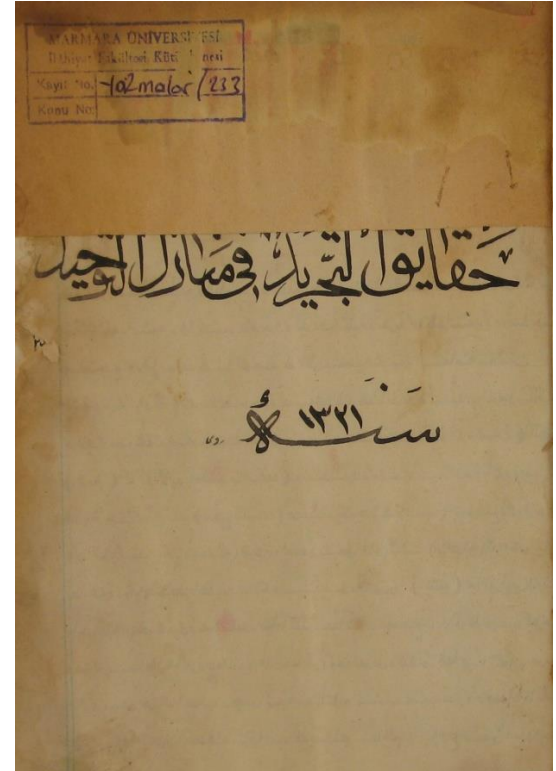 MARMARA ÜNİVERSİTESİ
İlahiyat Fakültesi Kütüphanesi
Kayıt No. Yazmalar/233
Konu No.
حقايق التجريد فى منازل التوحيد
سنة ١٣٢١